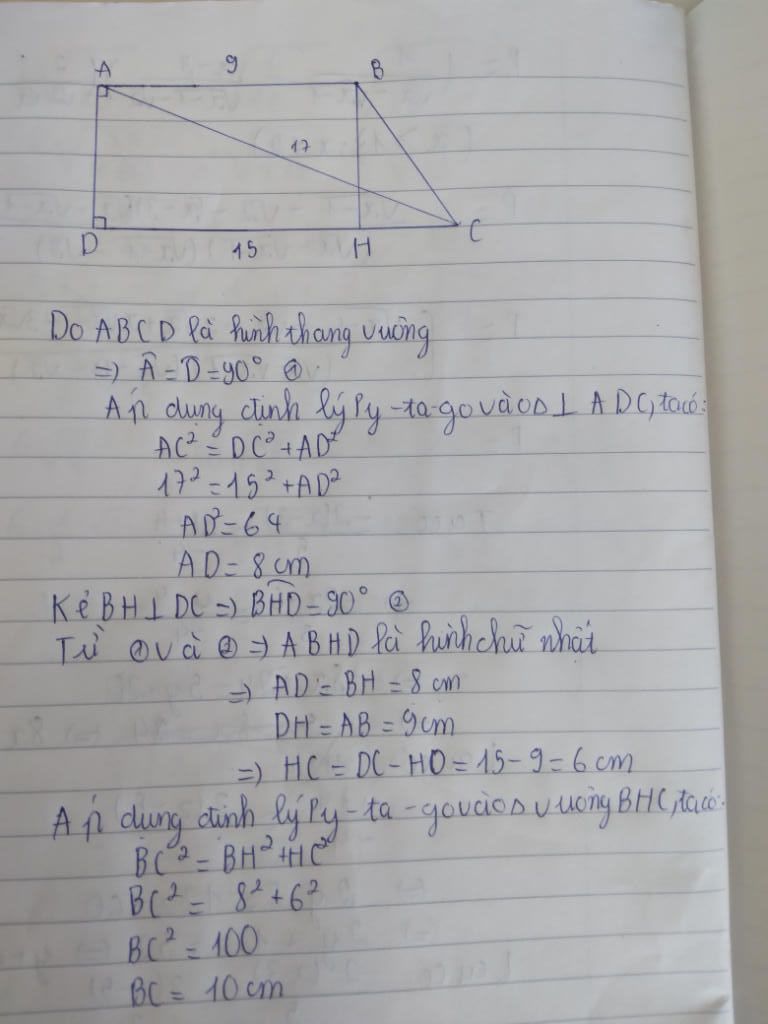 A 9 B
17
D 15 H C
Do ABCD là hình thang vuông
=> Â = D = 90° ①
Áp dụng định lý Py-ta-go vào Δ ⊥ ADC, ta có:
AC² = DC² + AD²
17² = 15² + AD²
AD² = 64
AD = 8 cm
Kẻ BH ⊥ DC => BHD = 90° ②
Từ ① và ② => ABHD là hình chữ nhật
=> AD = BH = 8 cm
DH = AB = 9cm
=> HC = DC - HD = 15 - 9 = 6 cm
Áp dụng định lý Py-ta-go vào Δ vuông BHC, ta có:
BC² = BH² + HC²
BC² = 8² + 6²
BC² = 100
BC = 10 cm